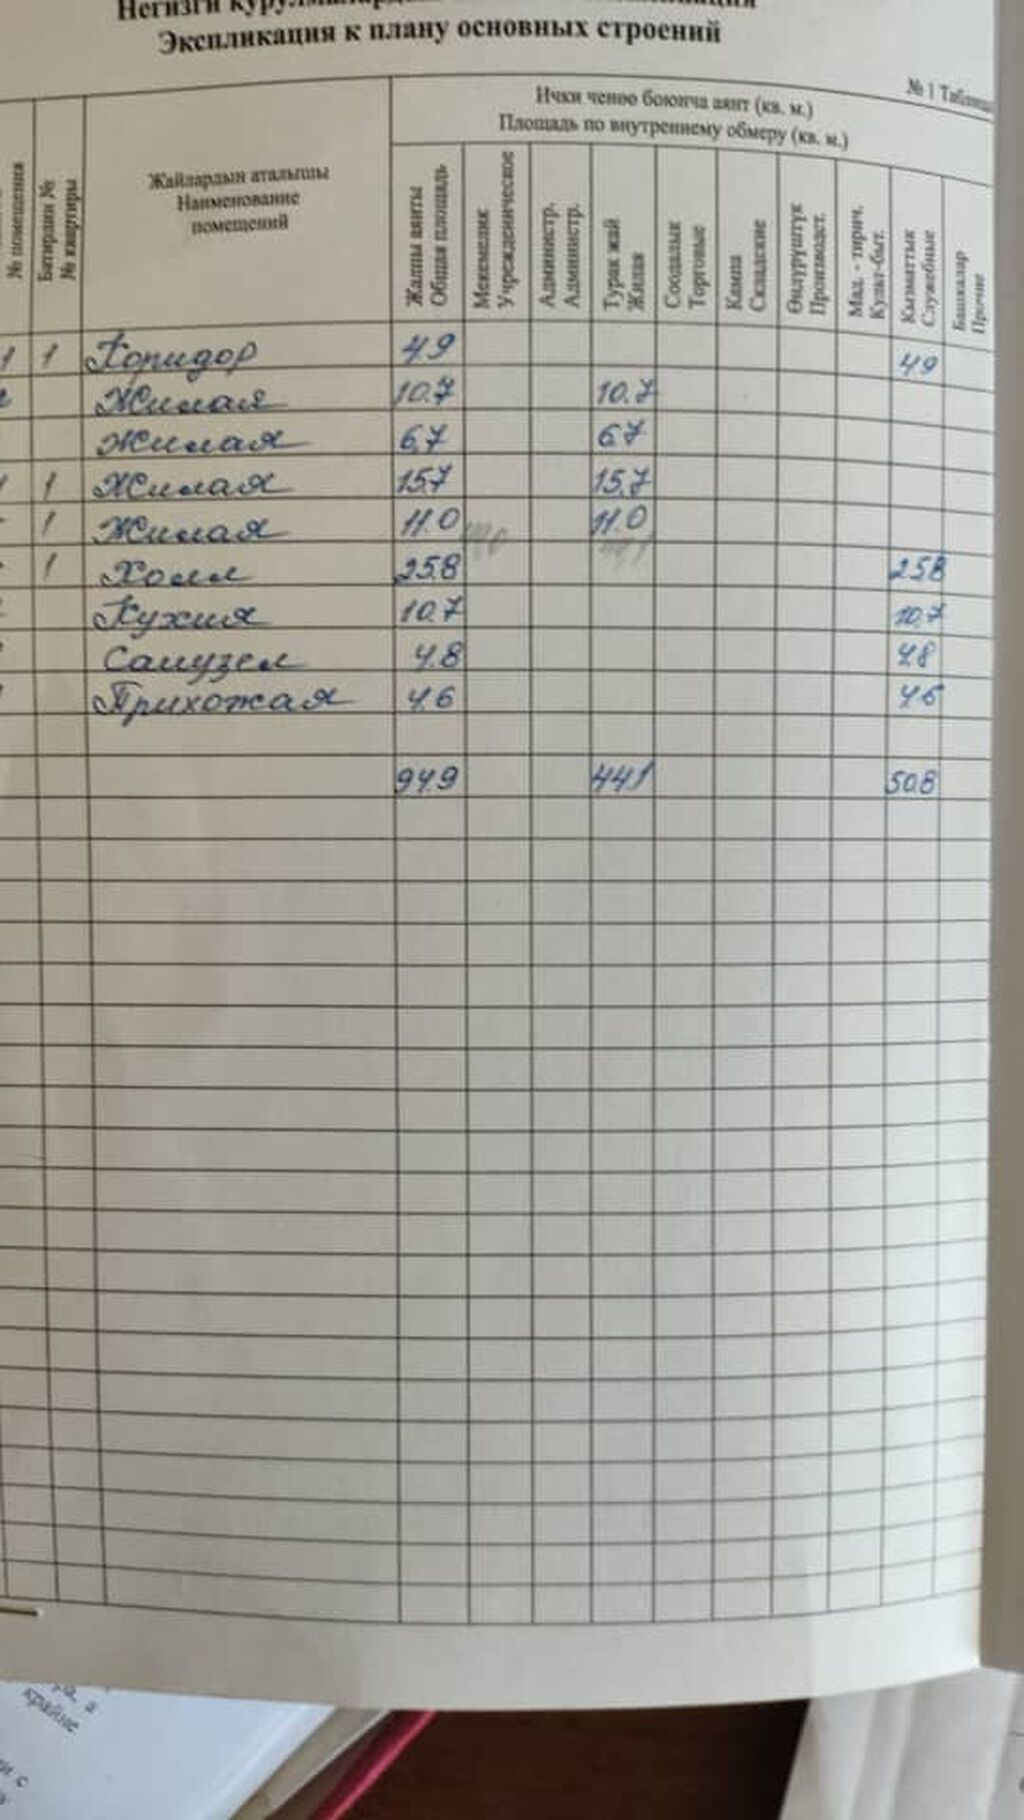 Негизги
Экспликация к плану основных строений
№ 1 Таблица
Ички ченөө боюнча аянт (кв. м.)
Площадь по внутреннему обмеру (кв. м.)
№ помещения
Батирдин №
№ квартиры
Жайлардын аталышы
Наименование
помещений
Жалпы аянты
Общая площадь
Мекемелик
Учрежденическое
Администр.
Администр.
Турак жай
Жилая
Соодалык
Торговые
Кампа
Складские
Өндүрүштүк
Производст.
Мад. - тирич.
Культ-быт.
Кызматтык
Служебные
Башкалар
Прочие
1 1 Коридор 4.9 4.9
2 Жилая 10.7 10.7
Жилая 6.7 6.7
1 Жилая 15.7 15.7
1 Жилая 11.0 11.0
1 Холл 25.8 25.8
Кухня 10.7 10.7
Санузел 4.8 4.8
Прихожая 4.6 4.6
94.9 44.1 50.8
а
крайне
и с